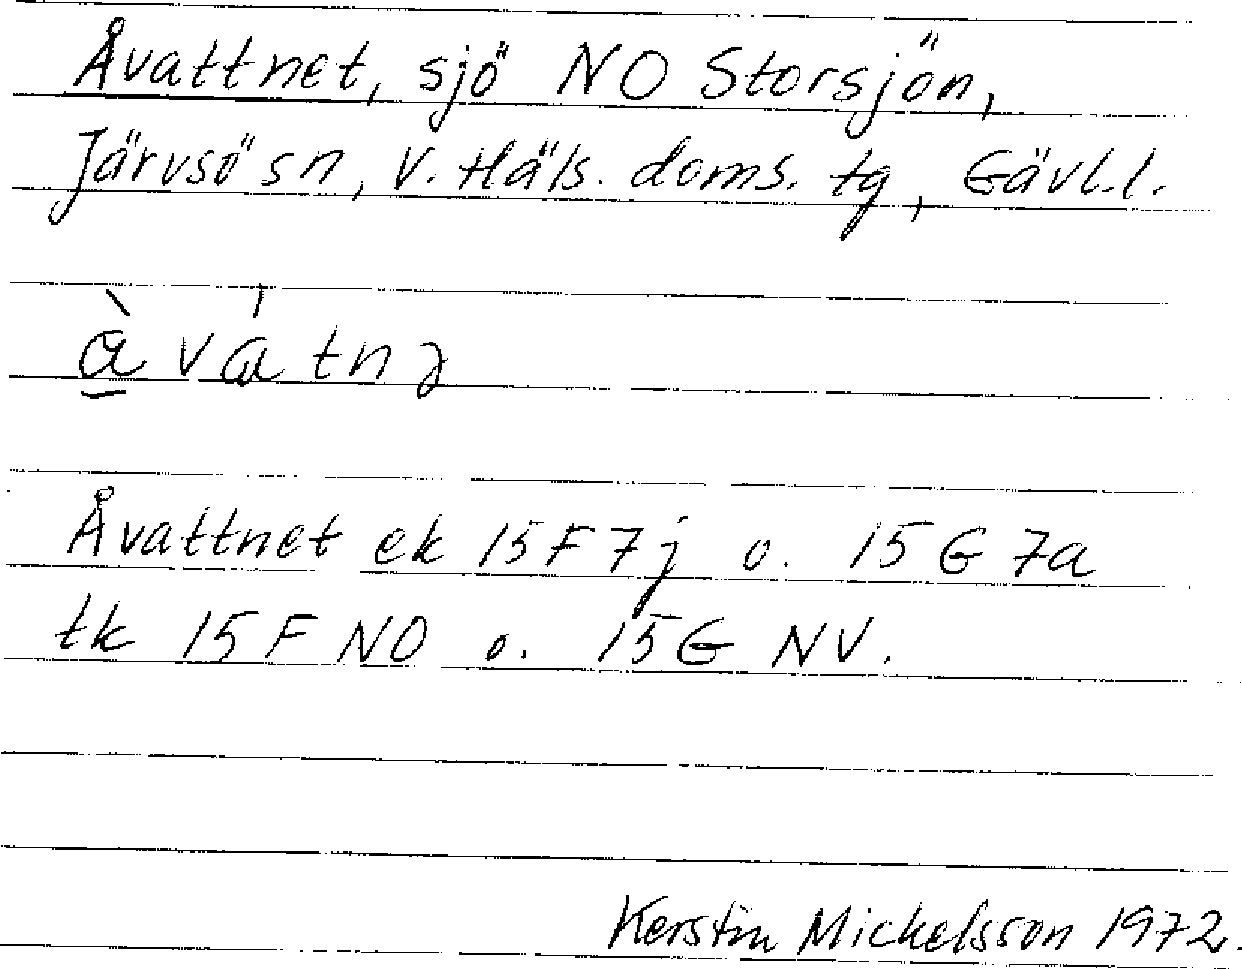 Åvattnet, sjö NO Storsjön,
Järvsö sn, V. Häls. doms. tg, Gävl.l.
Åvattnet ek 15F7j o. 15G 7a
tk 15F NO o. 15G NV.
Kerstin Mickelsson 1972.